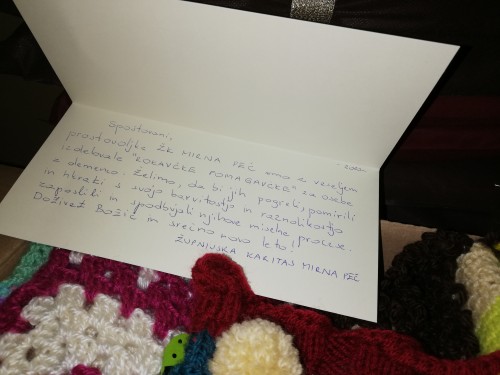 Spoštovani,
prostovoljke ŽK MIRNA PEČ smo z veseljem
izdelovale "ROKAVČKE POMAGAVČKE" za osebe
z demenco. Želimo, da bi jih pogreli, pomirili
in hkrati s svojo barvitostjo in raznolikostjo
zaposlili in spodbujali njihove miselne procese.
Doživet Božič in srečno novo leto!
ŽUPNIJSKA KARITAS MIRNA PEČ